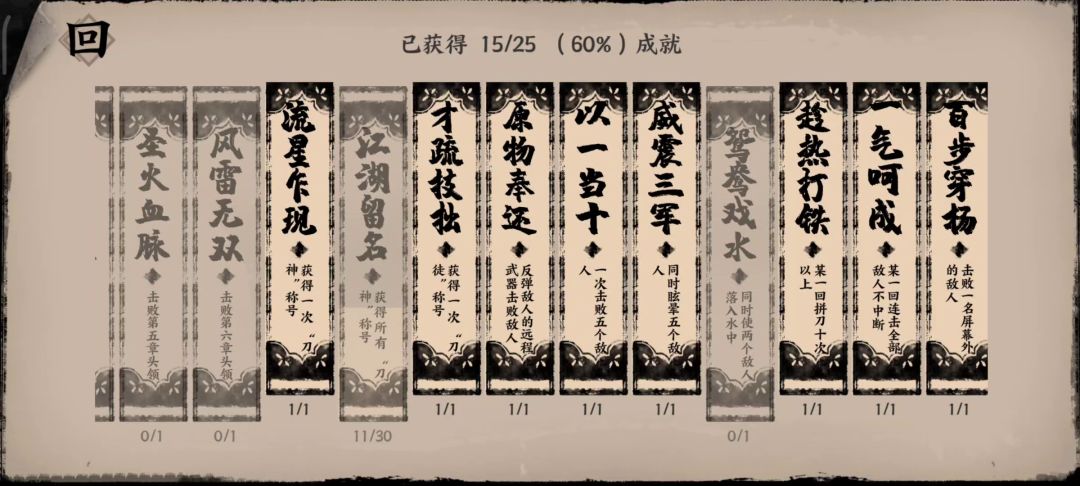 回
已获得 15/25 （60%）成就
圣火血脉
击败第五章头领
0/1
风雷无双
击败第六章头领
0/1
流星乍现
获得一次“刀
神”称号
1/1
江湖留名
获得所有“刀
神”称号
11/30
才疏技拙
获得一次“刀
徒”称号
1/1
原物奉还
反弹敌人的远程
武器击败敌人
1/1
以一当十
一次击败五个敌
人
1/1
威震三军
同时眩晕五个敌
人
1/1
鸳鸯戏水
同时使两个敌人
落入水中
0/1
趁热打铁
某一回拼刀十次
以上
1/1
一气呵成
某一回连击全部
敌人不中断
1/1
百步穿杨
击败一名屏幕外
的敌人
1/1